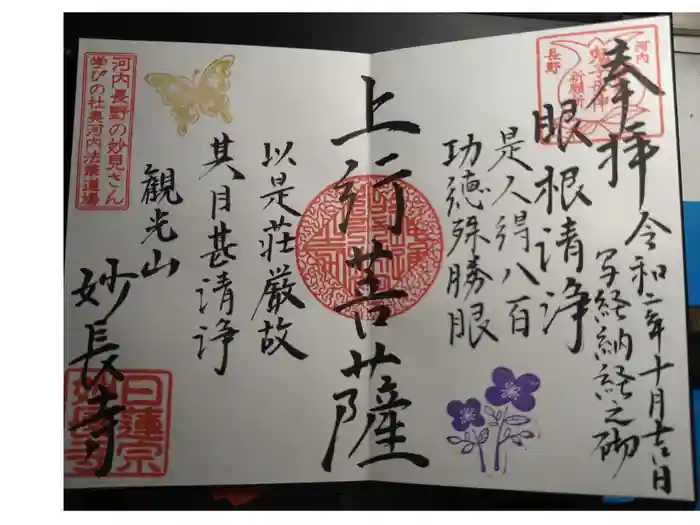 奉拝
令和二年十月吉日
写経納経之砌
眼根清浄
是人得八百
功徳殊勝眼
上行菩薩
以是荘厳故
其目甚清浄
観光山
妙長寺
河内
長野
祈願所
河内長野の妙見さん
学びの社奥河内法華道場
日蓮宗
妙長寺